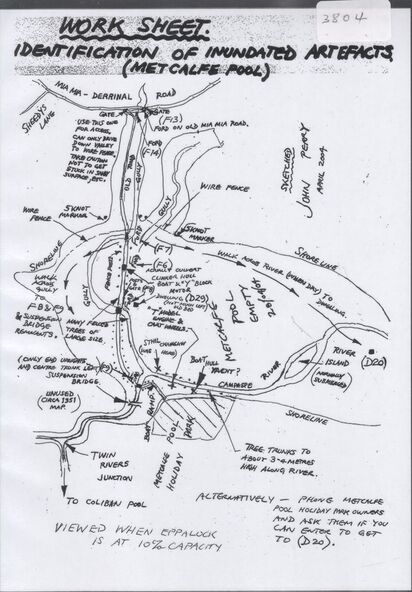 3804
WORK SHEET.
IDENTIFICATION OF INUNDATED ARTEFACTS.
(METCALFE POOL)
MIA MIA - DERRINAL ROAD
SHEEDYS
LANE
GATE
GATE
(F13)
USE THIS ONE
FOR ACCESS.
CAN ONLY DRIVE
DOWN VALLEY
TO WIRE FENCE.
TAKE CAUTION
NOT TO GET
STUCK IN
SURFACE, ETC.
FORD ON OLD MIA MIA ROAD.
FORD
(F14)
OLD ROAD
GULLY
SKETCHED
JOHN PERRY
APRIL 2004
WIRE FENCE
GULLY
WIRE
FENCE
5 KNOT
MARKER
5 KNOT
MARKER
FORD
(F7)
SHORELINE
SHORE LINE
WALK ACROSS RIVER (WHEN DRY) TO DWELLING.
WALK
ACROSS
GULLY
TO
F8 & F9
SUSPENSION
BRIDGE
REMNANTS.
GULLY
(F6)
CULVERT
CLINKER HULL
BOAT & "Y" BLOCK
MOTOR
DWELLING (D29)
MODEL
ENGINE &
CART WHEELS.
METCALFE
POOL
EMPTY
MANY FELLED
TREES OF
LARGE SIZE.
BOAT HULL
YACHT?
CAMPASPE
RIVER
RIVER
ISLAND
(NORMALLY
SUBMERGED)
(D20)
(ONLY END UPRIGHTS
AND CENTRE TRUNK LEFT)
SUSPENSION
BRIDGE.
(UNUSED
CIRCA 1951
MAP.
BOAT RAMP
METCALFE
POOL
HOLIDAY
PARK
SHORELINE
TREE TRUNKS TO
ABOUT 3-4 METRES
HIGH ALONG RIVER.
TWIN
RIVERS
JUNCTION
TO COLIBAN POOL
ALTERNATIVELY — PHONE METCALFE
POOL HOLIDAY PARK OWNERS
AND ASK THEM IF YOU
CAN ENTER TO GET
TO (D20).
VIEWED WHEN EPPALOCK
IS AT 10% CAPACITY